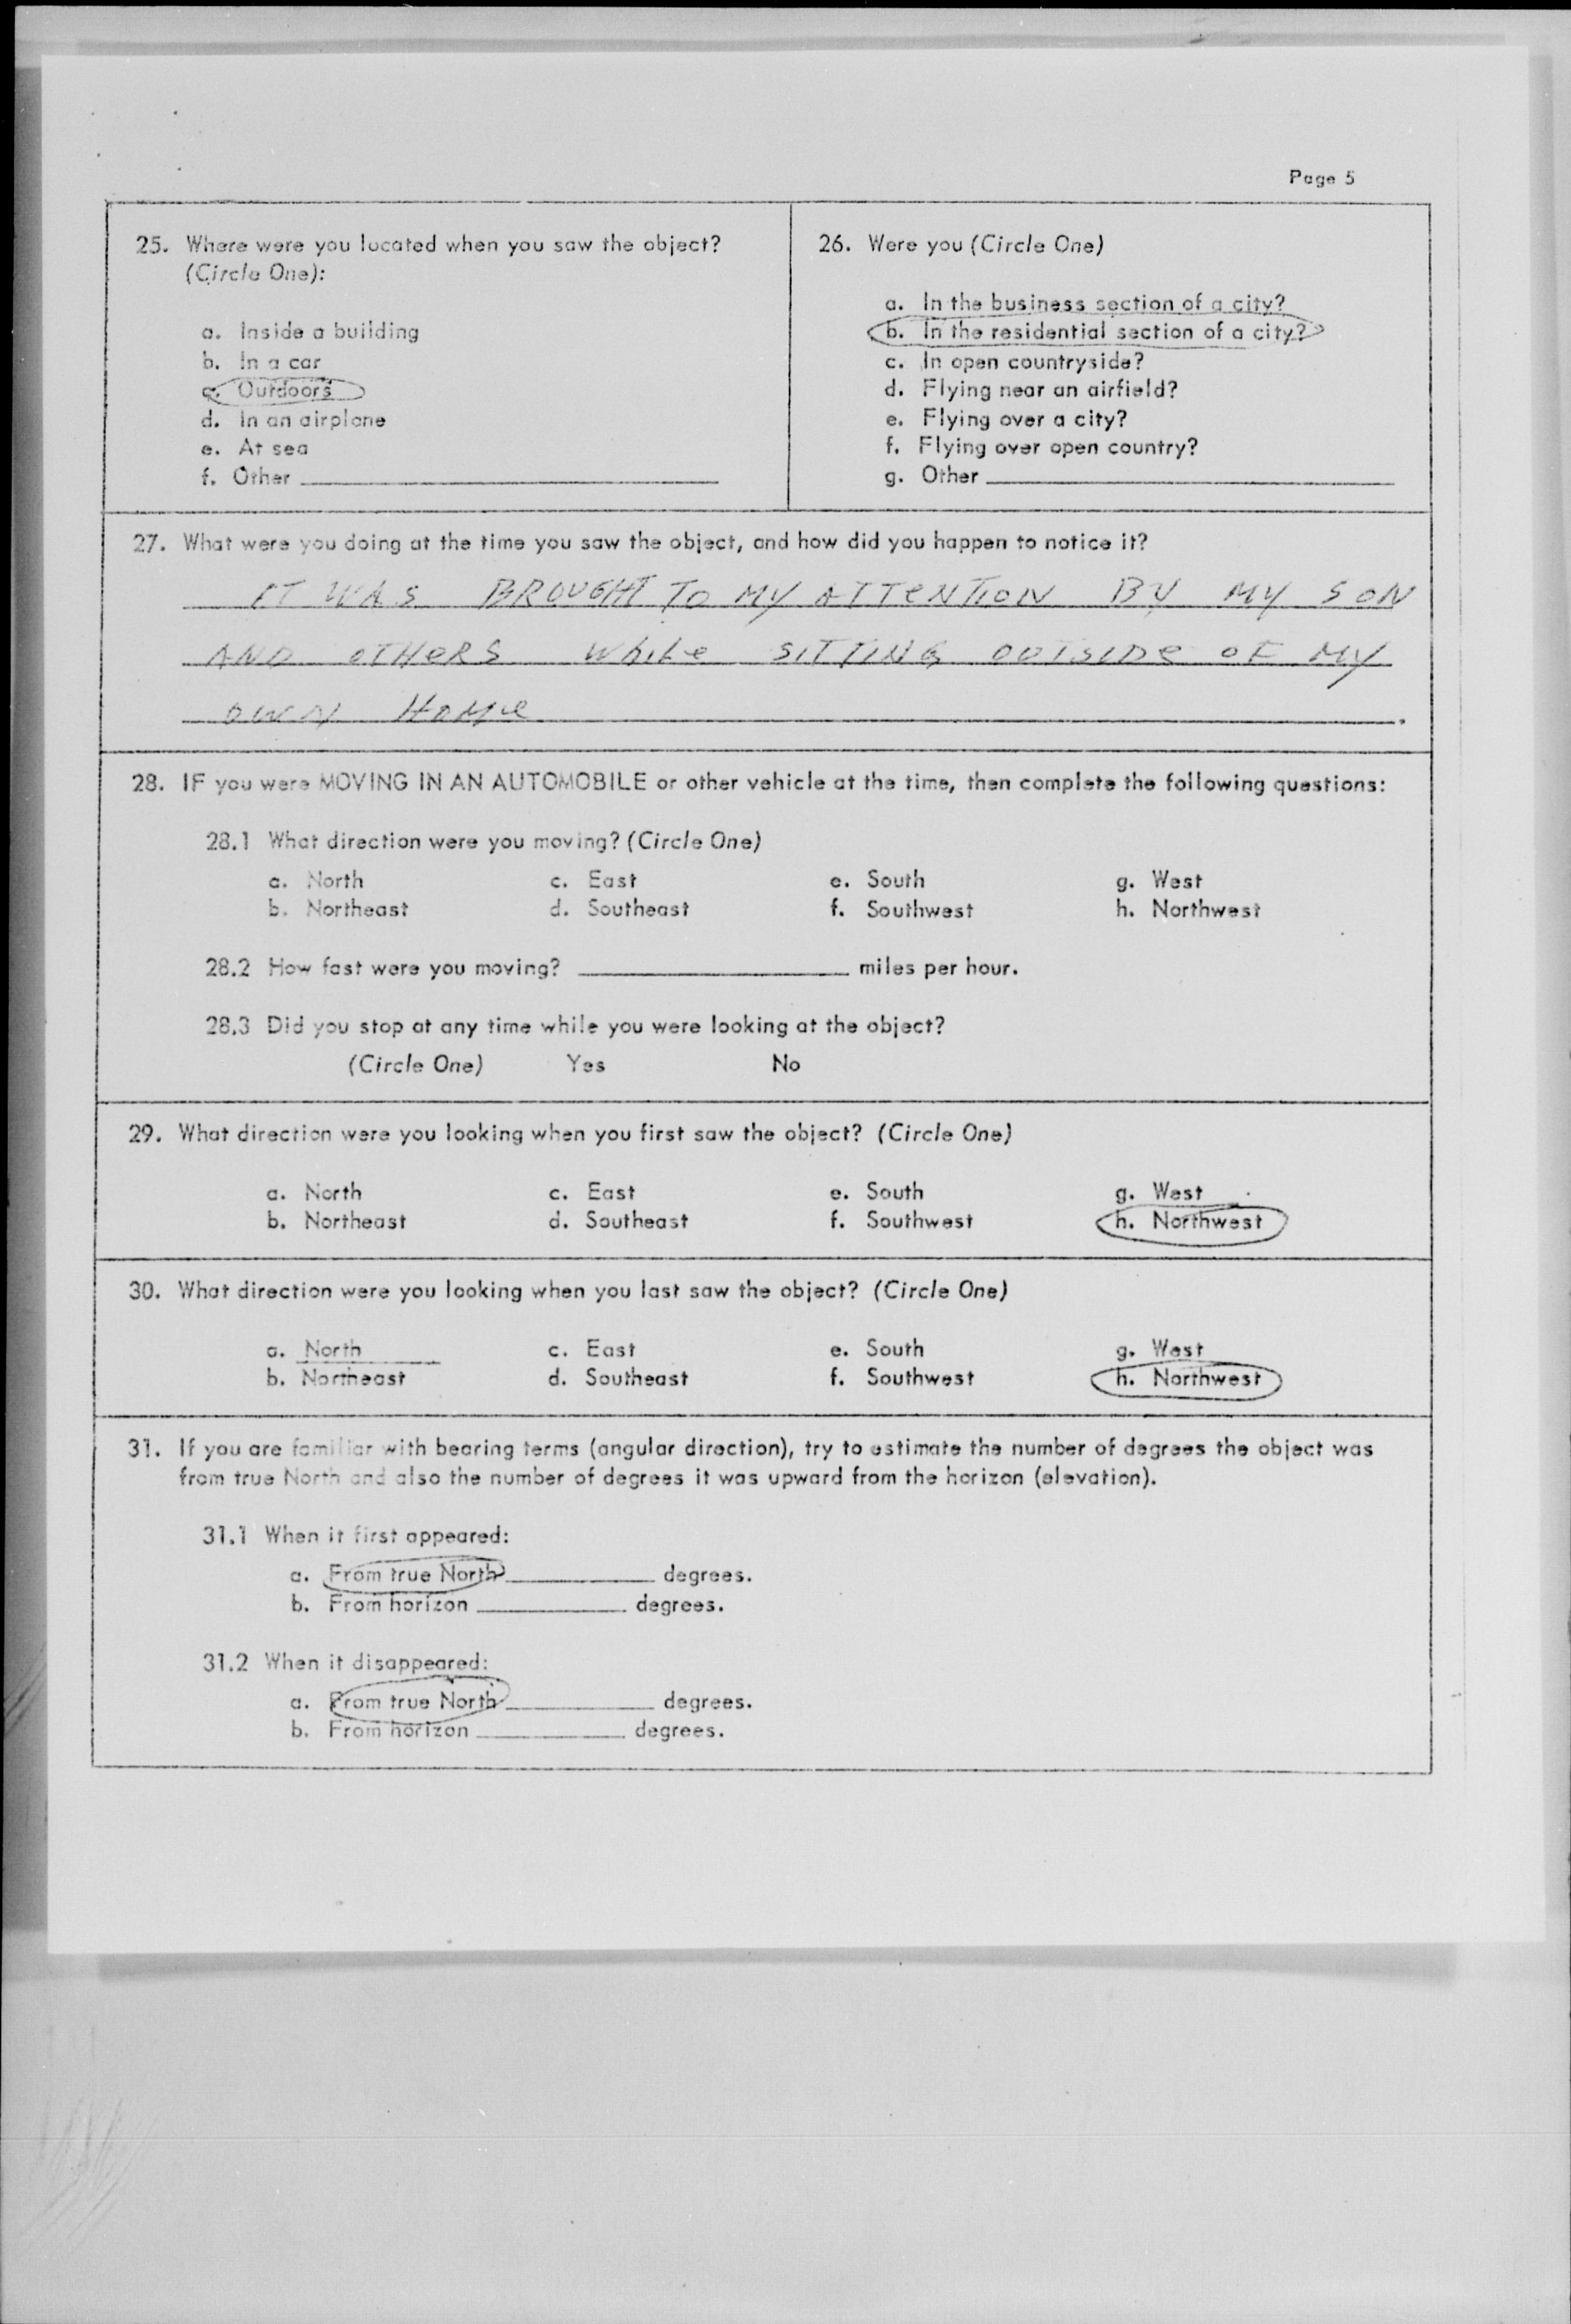 Page 5
25. Where were you located when you saw the object?
(Circle One):
a. Inside a building
b. In a car
c. Outdoors
d. In an airplane
e. At sea
f. Other
26. Were you (Circle One)
a. In the business section of a city?
b. In the residential section of a city?
c. In open countryside?
d. Flying near an airfield?
e. Flying over a city?
f. Flying over open country?
g. Other
27. What were you doing at the time you saw the object, and how did you happen to notice it?
IT WAS BROUGHT TO MY ATTENTION BY MY SON
AND OTHERS WHILE SITTING OUTSIDE OF MY
OWN HOME
28. IF you were MOVING IN AN AUTOMOBILE or other vehicle at the time, then complete the following questions:
28.1 What direction were you moving? (Circle One)
a. North c. East e. South g. West
b. Northeast d. Southeast f. Southwest h. Northwest
28.2 How fast were you moving? miles per hour.
28.3 Did you stop at any time while you were looking at the object?
(Circle One) Yes No
29. What direction were you looking when you first saw the object? (Circle One)
a. North c. East e. South g. West
b. Northeast d. Southeast f. Southwest h. Northwest
30. What direction were you looking when you last saw the object? (Circle One)
a. North c. East e. South g. West
b. Northeast d. Southeast f. Southwest h. Northwest
31. If you are familiar with bearing terms (angular direction), try to estimate the number of degrees the object was
from true North and also the number of degrees it was upward from the horizon (elevation).
31.1 When it first appeared:
a. From true North degrees.
b. From horizon degrees.
31.2 When it disappeared:
a. From true North degrees.
b. From horizon degrees.